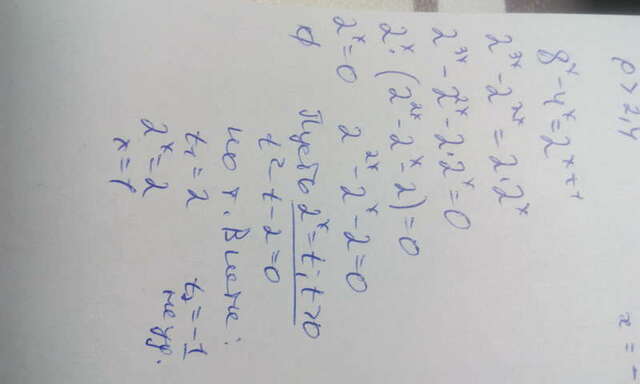 p > 2,4
x = -
8ˣ - 4ˣ = 2ˣ⁺¹
2³ˣ - 2²ˣ = 2·2ˣ
2³ˣ - 2²ˣ - 2·2ˣ = 0
2ˣ·(2²ˣ - 2ˣ - 2) = 0
2ˣ = 0 2²ˣ - 2ˣ - 2 = 0
∅ Пусть 2ˣ = t, t > 0
t² - t - 2 = 0
по т. Виета:
t₁ = 2 t₂ = -1
2ˣ = 2 не уд.
x = 1